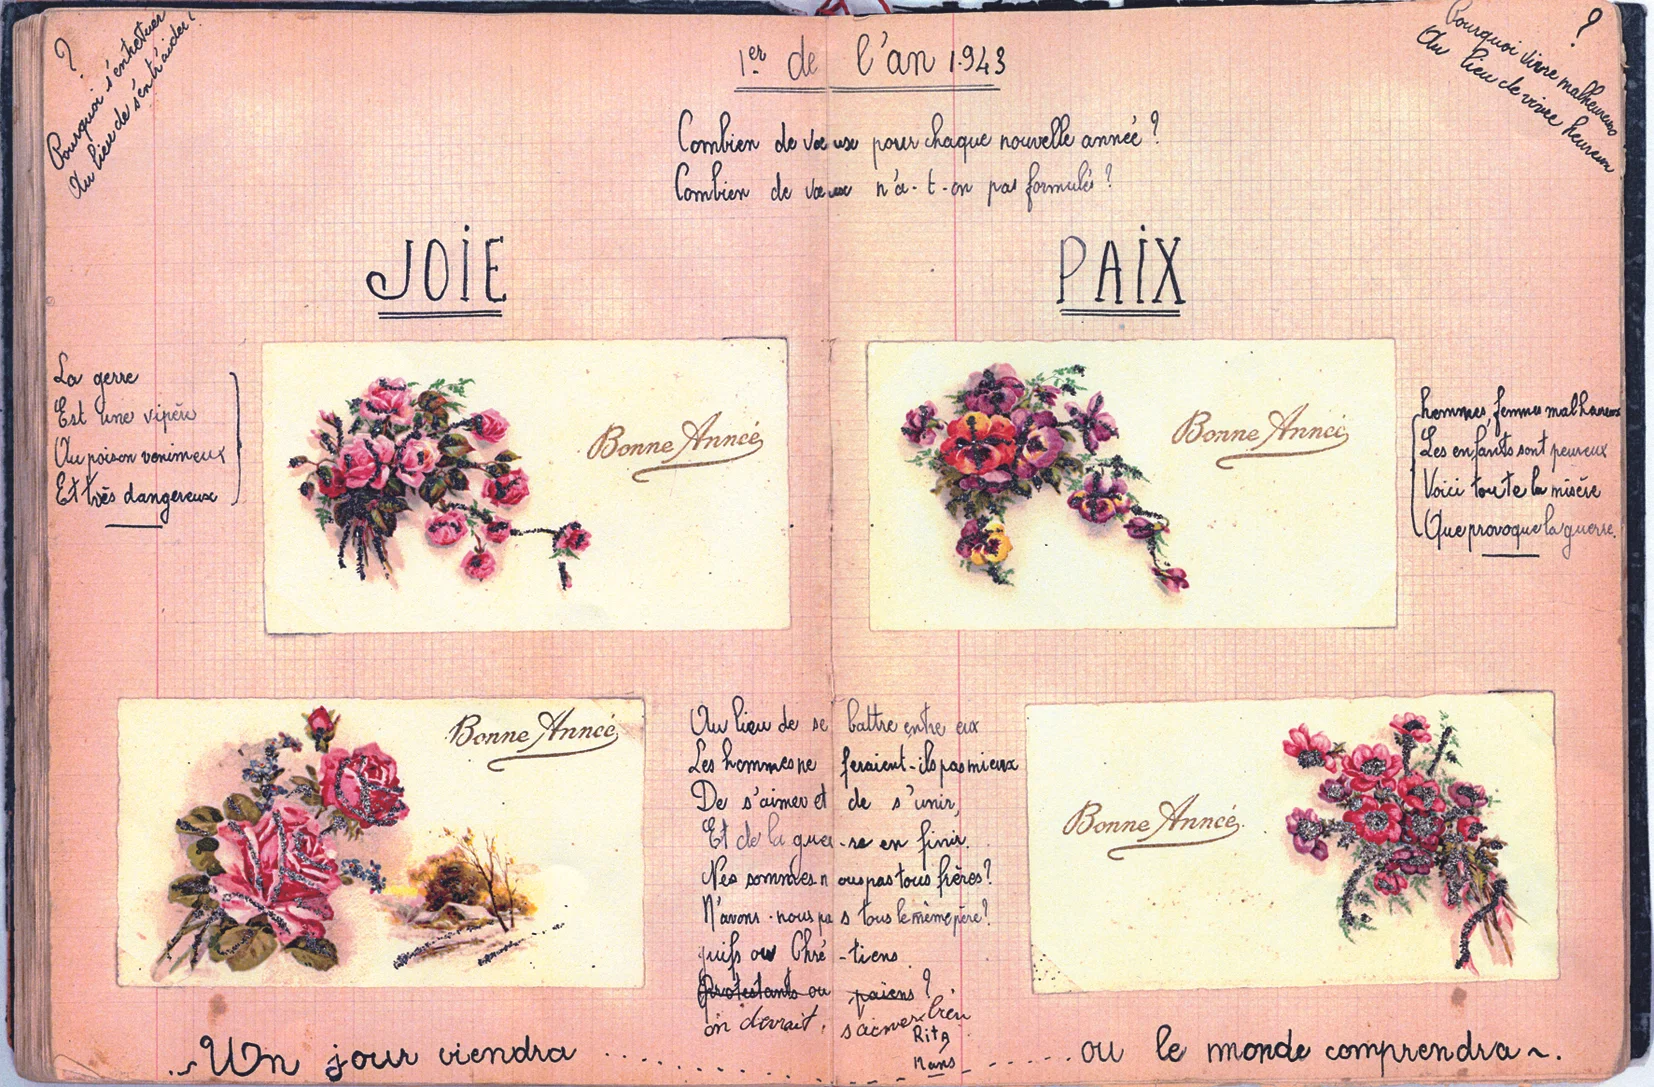 ?
Pourquoi s'entretuer
Au lieu de s'entr'aider!
1er de l'an 1943
?
Pourquoi vivre malheureux
Au lieu de vivre heureux
Combien de vœux pour chaque nouvelle année?
Combien de vœux n'a-t-on pas formulés?
JOIE
PAIX
La gerre
Est une vipère
Au poison venimeux
Et très dangereux
Bonne Année
Bonne Année
hommes, femmes malheureux
Les enfants sont peureux
Voici toute la misère
Que provoque la guerre.
Bonne Année
Au lieu de se battre entre eux
Les hommes ne feraient-ils pas mieux
De s'aimer et de s'unir,
Et de la guer-re en finir.
Nes sommes nous pas tous frères?
N'avons-nous pas tous le même père?
juifs ou Chré-tiens
Protestants ou paiens?
on devrait, s'aimer bien
Rita
Bonne Année
Un jour viendra ............ ou le monde comprendra~.